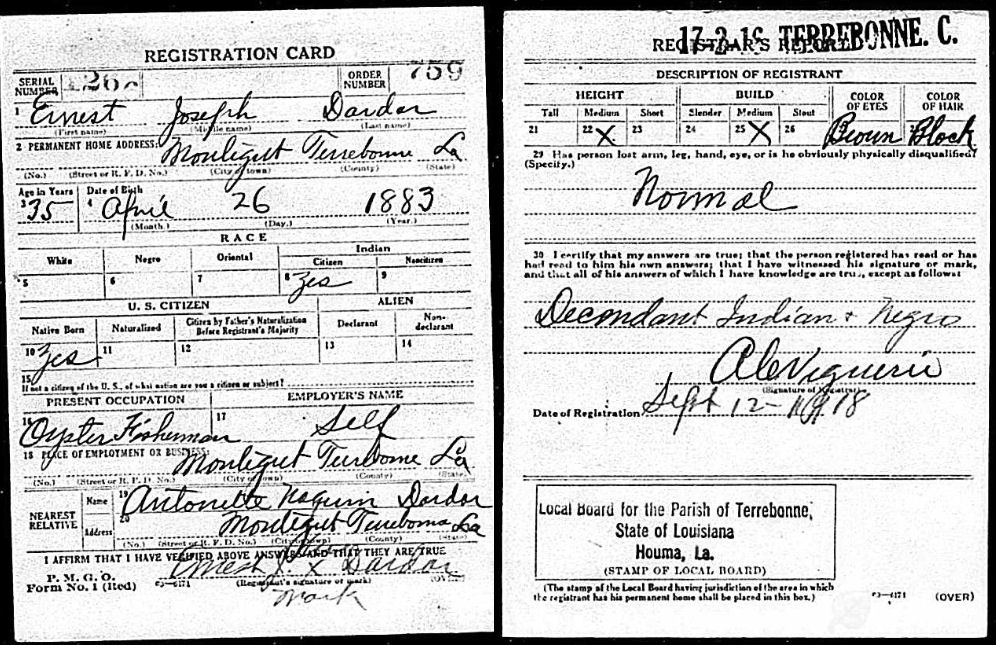 REGISTRATION CARD
SERIAL NUMBER ORDER NUMBER 759
1 Ernest Joseph Dardar
(First name) (Middle name) (Last name)
2 PERMANENT HOME ADDRESS: Montegut Terrebonne La
(No.) (Street or R. F. D. No.) (City or town) (County) (State)
Age in Years Date of Birth
3 35 4 April 26 1883
(Month.) (Day.) (Year.)
RACE
White Negro Oriental Indian
Citizen Noncitizen
5 6 7 8 Yes 9
U. S. CITIZEN ALIEN
Native Born Naturalized Citizen by Father's Naturalization Before Registrant's Majority Declarant Non-declarant
10 Yes 11 12 13 14
15 If not a citizen of the U. S., of what nation are you a citizen or subject?
PRESENT OCCUPATION EMPLOYER'S NAME
16 Oyster Fisherman 17 Self
18 PLACE OF EMPLOYMENT OR BUSINESS: Montegut Terrebonne La
(No.) (Street or R. F. D. No.) (City or town) (County) (State)
NEAREST RELATIVE Name 19 Antonette Naquin Dardar
Address 20 Montegut Terrebonne La
(No.) (Street or R. F. D. No.) (City or town) (County) (State)
I AFFIRM THAT I HAVE VERIFIED ABOVE ANSWERS AND THAT THEY ARE TRUE
P. M. G. O.
Form No. 1 (Red) Ernest J. X Dardar
(Registrant's signature or mark) (OVER)
mark
17-2-16 TERREBONNE. C.
REGISTRAR'S REPORT
DESCRIPTION OF REGISTRANT
HEIGHT BUILD COLOR OF EYES COLOR OF HAIR
Tall Medium Short Slender Medium Stout
21 22 X 23 24 25 X 26 Brown Black
29 Has person lost arm, leg, hand, eye, or is he obviously physically disqualified?
(Specify.)
Normal
30 I certify that my answers are true; that the person registered has read or has
had read to him his own answers; that I have witnessed his signature or mark,
and that all of his answers of which I have knowledge are true, except as follows:
Decondant Indian + Negro
(Signature of Registrar)
Date of Registration Sept 12 - 1918
Local Board for the Parish of Terrebonne,
State of Louisiana
Houma, La.
(STAMP OF LOCAL BOARD)
(The stamp of the Local Board having jurisdiction of the area in which
the registrant has his permanent home shall be placed in this box.)
(OVER)